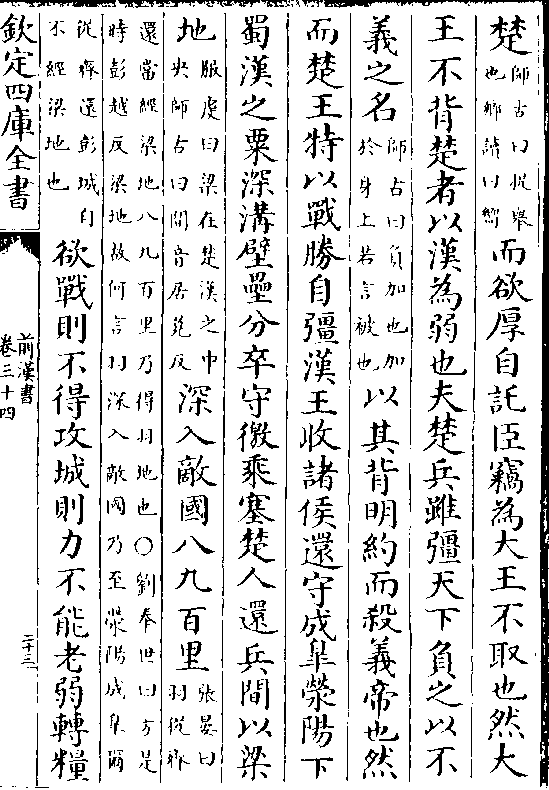 楚師古曰提舉也鄉讀曰嚮而欲厚自託臣竊為大王不取也然大
王不背楚者以漢為弱也夫楚兵雖彊天下負之以不
義之名師古曰負加也加於身上若言被也以其背明約而殺義帝也然
而楚王特以戰勝自彊漢王收諸侯還守成臯滎陽下
蜀漢之粟深溝壁壘分卒守徼乘塞楚人還兵間以梁
地服虔曰梁在楚漢之中央師古曰間音居莧反深入敵國八九百里張晏曰羽從齊
還當經梁地八九百里乃得羽地也〇劉奉世曰方是時彭越反梁地故何言羽深入敵國乃至滎陽成臯爾
從齊還彭城自不經梁地也欲戰則不得攻城則力不能老弱轉糧
欽定四庫全書
前漢書
卷三十四
二十三